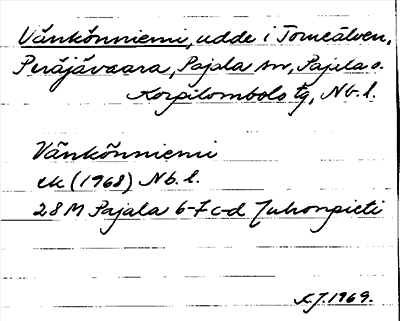 Vänkönniemi, udde i Torneälven,
Peräjävaara, Pajala sn, Pajala o.
Korpilombolo tg, Nb. l.
Vänkönniemi
ek (1968) Nb. l.
28 M Pajala 6-7 c-d Juhonpieti
K.J. 1969.